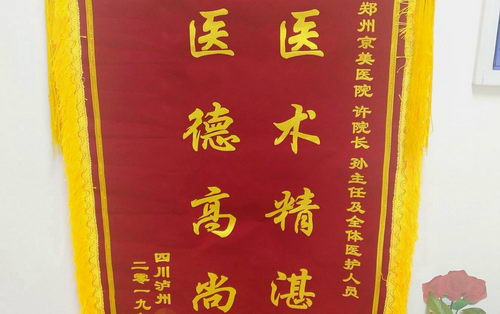 郑州京美医院 许院长 孙主任及全体医护人员
医术精湛
医德高尚
四川泸州
二零一九